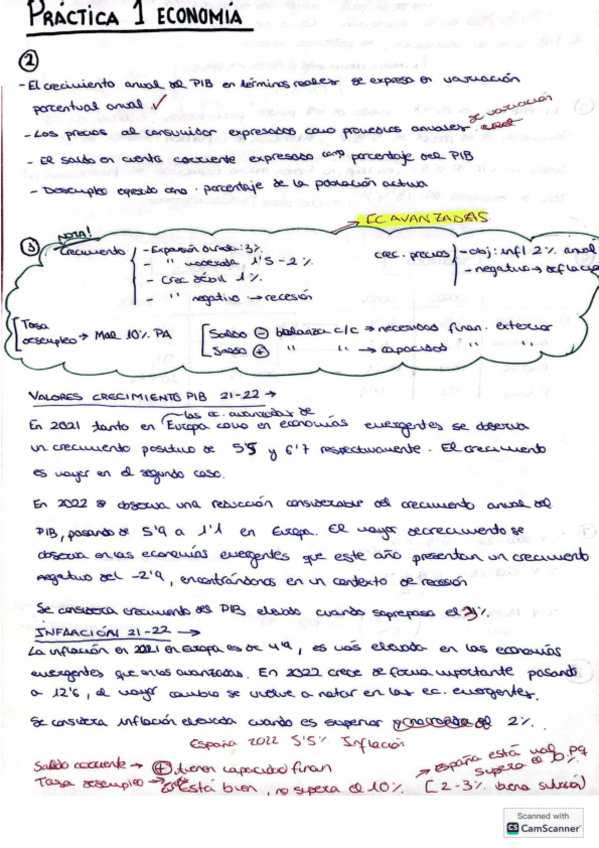 PRÁCTICA 1 ECONOMÍA
②
- El crecimiento anual del PIB en términos reales se expresa en variación
porcentual anual ✓
- Los precios al consumidor expresados como promedios anuales de variación
- El saldo en cuenta corriente expresado como porcentaje del PIB
- Desempleo expresado como porcentaje de la población activa
→ EC AVANZADAS
③ NOTA!
Crecimiento - Expansión : 3%
- " moderada 1'5 - 2%
- Crec débil 1%
- " negativo → recesión
crec. precios - obj: infl 2% anual
- negativo → deflación
Tasa desempleo → Mal 10% PA
Saldo ⊖ balanza c/c → necesidad finan. exterior
Saldo ⊕ " " → capacidad " "
VALORES CRECIMIENTO PIB 21-22 →
las ec. avanzadas de
En 2021 tanto en Europa como en economías emergentes se observa
un crecimiento positivo de 5'9 y 6'7 respectivamente. El crecimiento
es mayor en el segundo caso.
En 2022 se observa una reducción considerable del crecimiento anual del
PIB, pasando de 5'9 a 1'1 en Europa. El mayor decrecimiento se
observa en las economías emergentes que este año presentan un crecimiento
negativo del -2'9, encontrándonos en un contexto de recesión
Se considera crecimiento del PIB elevado cuando soprepasa el 3%.
INFLACIÓN 21-22 →
La inflación en 2021 en Europa es de 4'9, es más elevada en las economías
emergentes que en las avanzadas. En 2022 crece de forma importante pasando
a 12'6, el mayor cambio se vuelve a notar en las ec. emergentes.
Se considera inflación elevada cuando es superior al 2%.
España 2022 5'5% Inflación
Saldo corriente → ⊕ tienen capacidad finan
Tasa desempleo → Está bien, no supera el 10%
→ España está mal pq
supera el %
[2-3% buena situación]
Scanned with
CS CamScanner